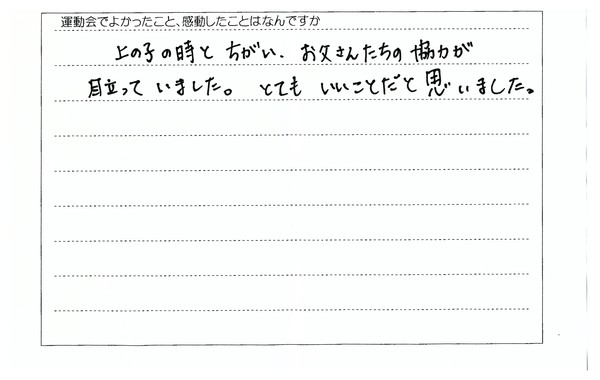 運動会でよかったこと、感動したことはなんですか
上の子の時と ちがい、お父さんたちの 協力が
目立って いました。 とても いいことだと 思いました。